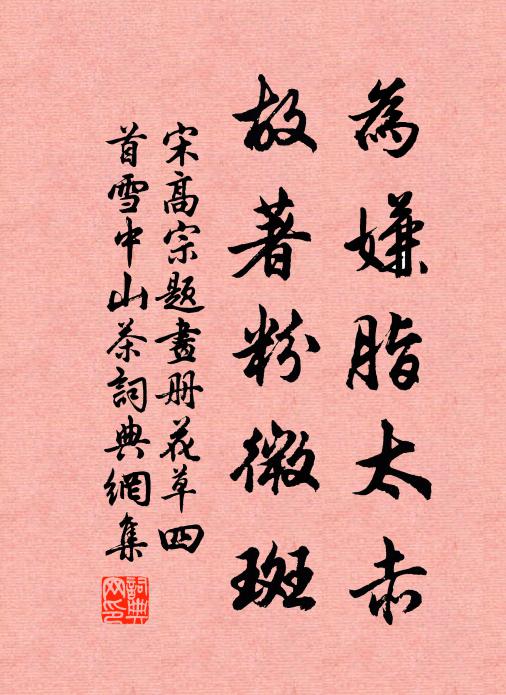 為嫌脂太赤
故著粉微斑
宋高宗題畫册花草四
首雪中山茶詞典網集
詞典网印